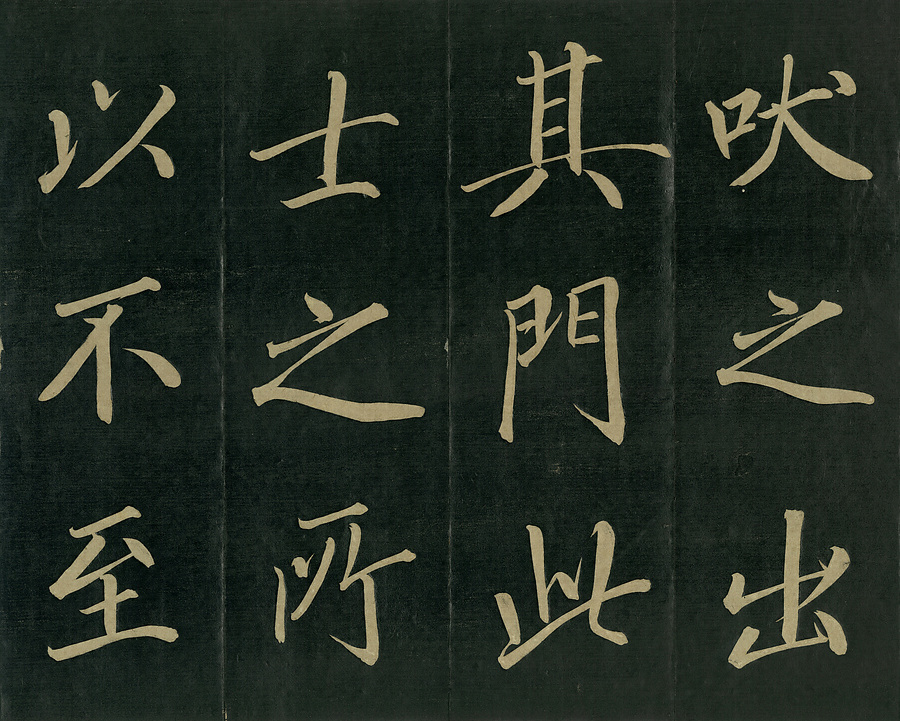 吠之出
其門此
士之所
以不至